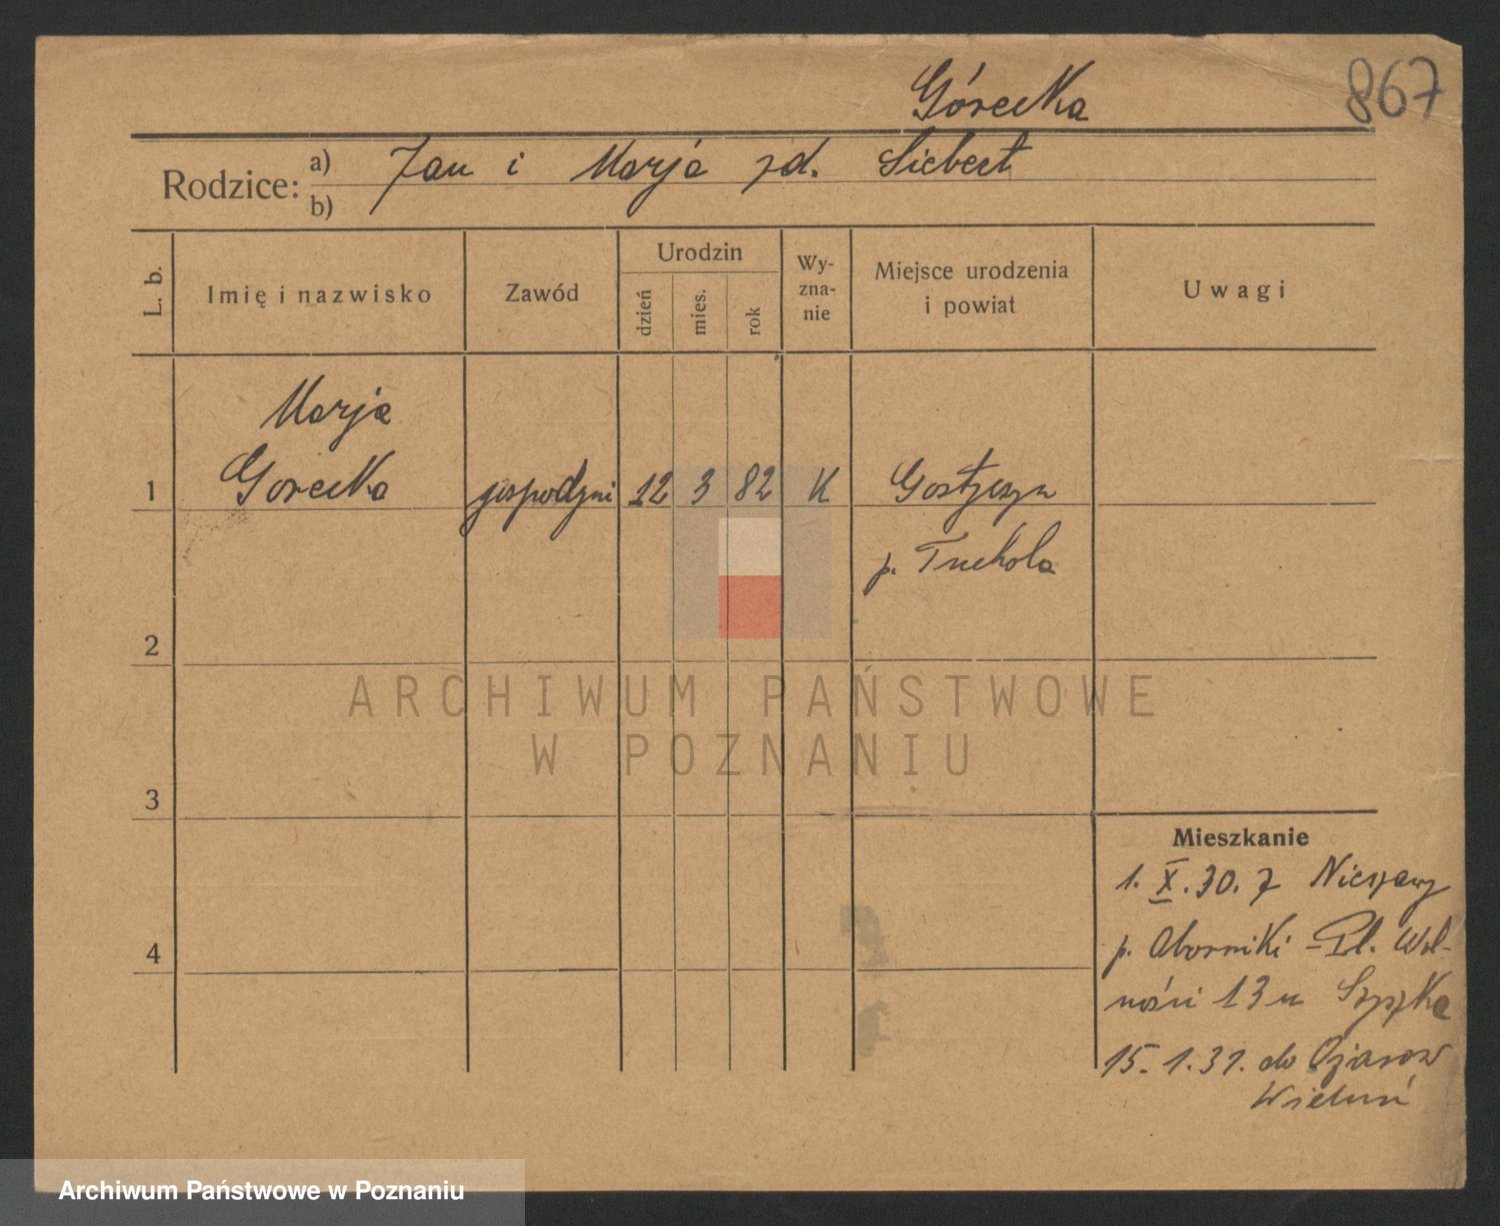 Górecka
867
Rodzice:
a) Jan i Marja zd. Siebert
b)
L. b.
Imię i nazwisko
Zawód
Urodzin
dzień
mies.
rok
Wy-
zna-
nie
Miejsce urodzenia
i powiat
Uwagi
Marja
1 Gorecka gospodyni 12 3 82 K Gostyczyn
p. Tuchola
2
3
4
Mieszkanie
1. X. 30. z Nieszawy
p. Oborniki - Pl. Wol-
ności 13 u Szyszka
15. 1. 31. do Ożarow
Wieluń
ARCHIWUM PAŃSTWOWE
W POZNANIU
Archiwum Państwowe w Poznaniu